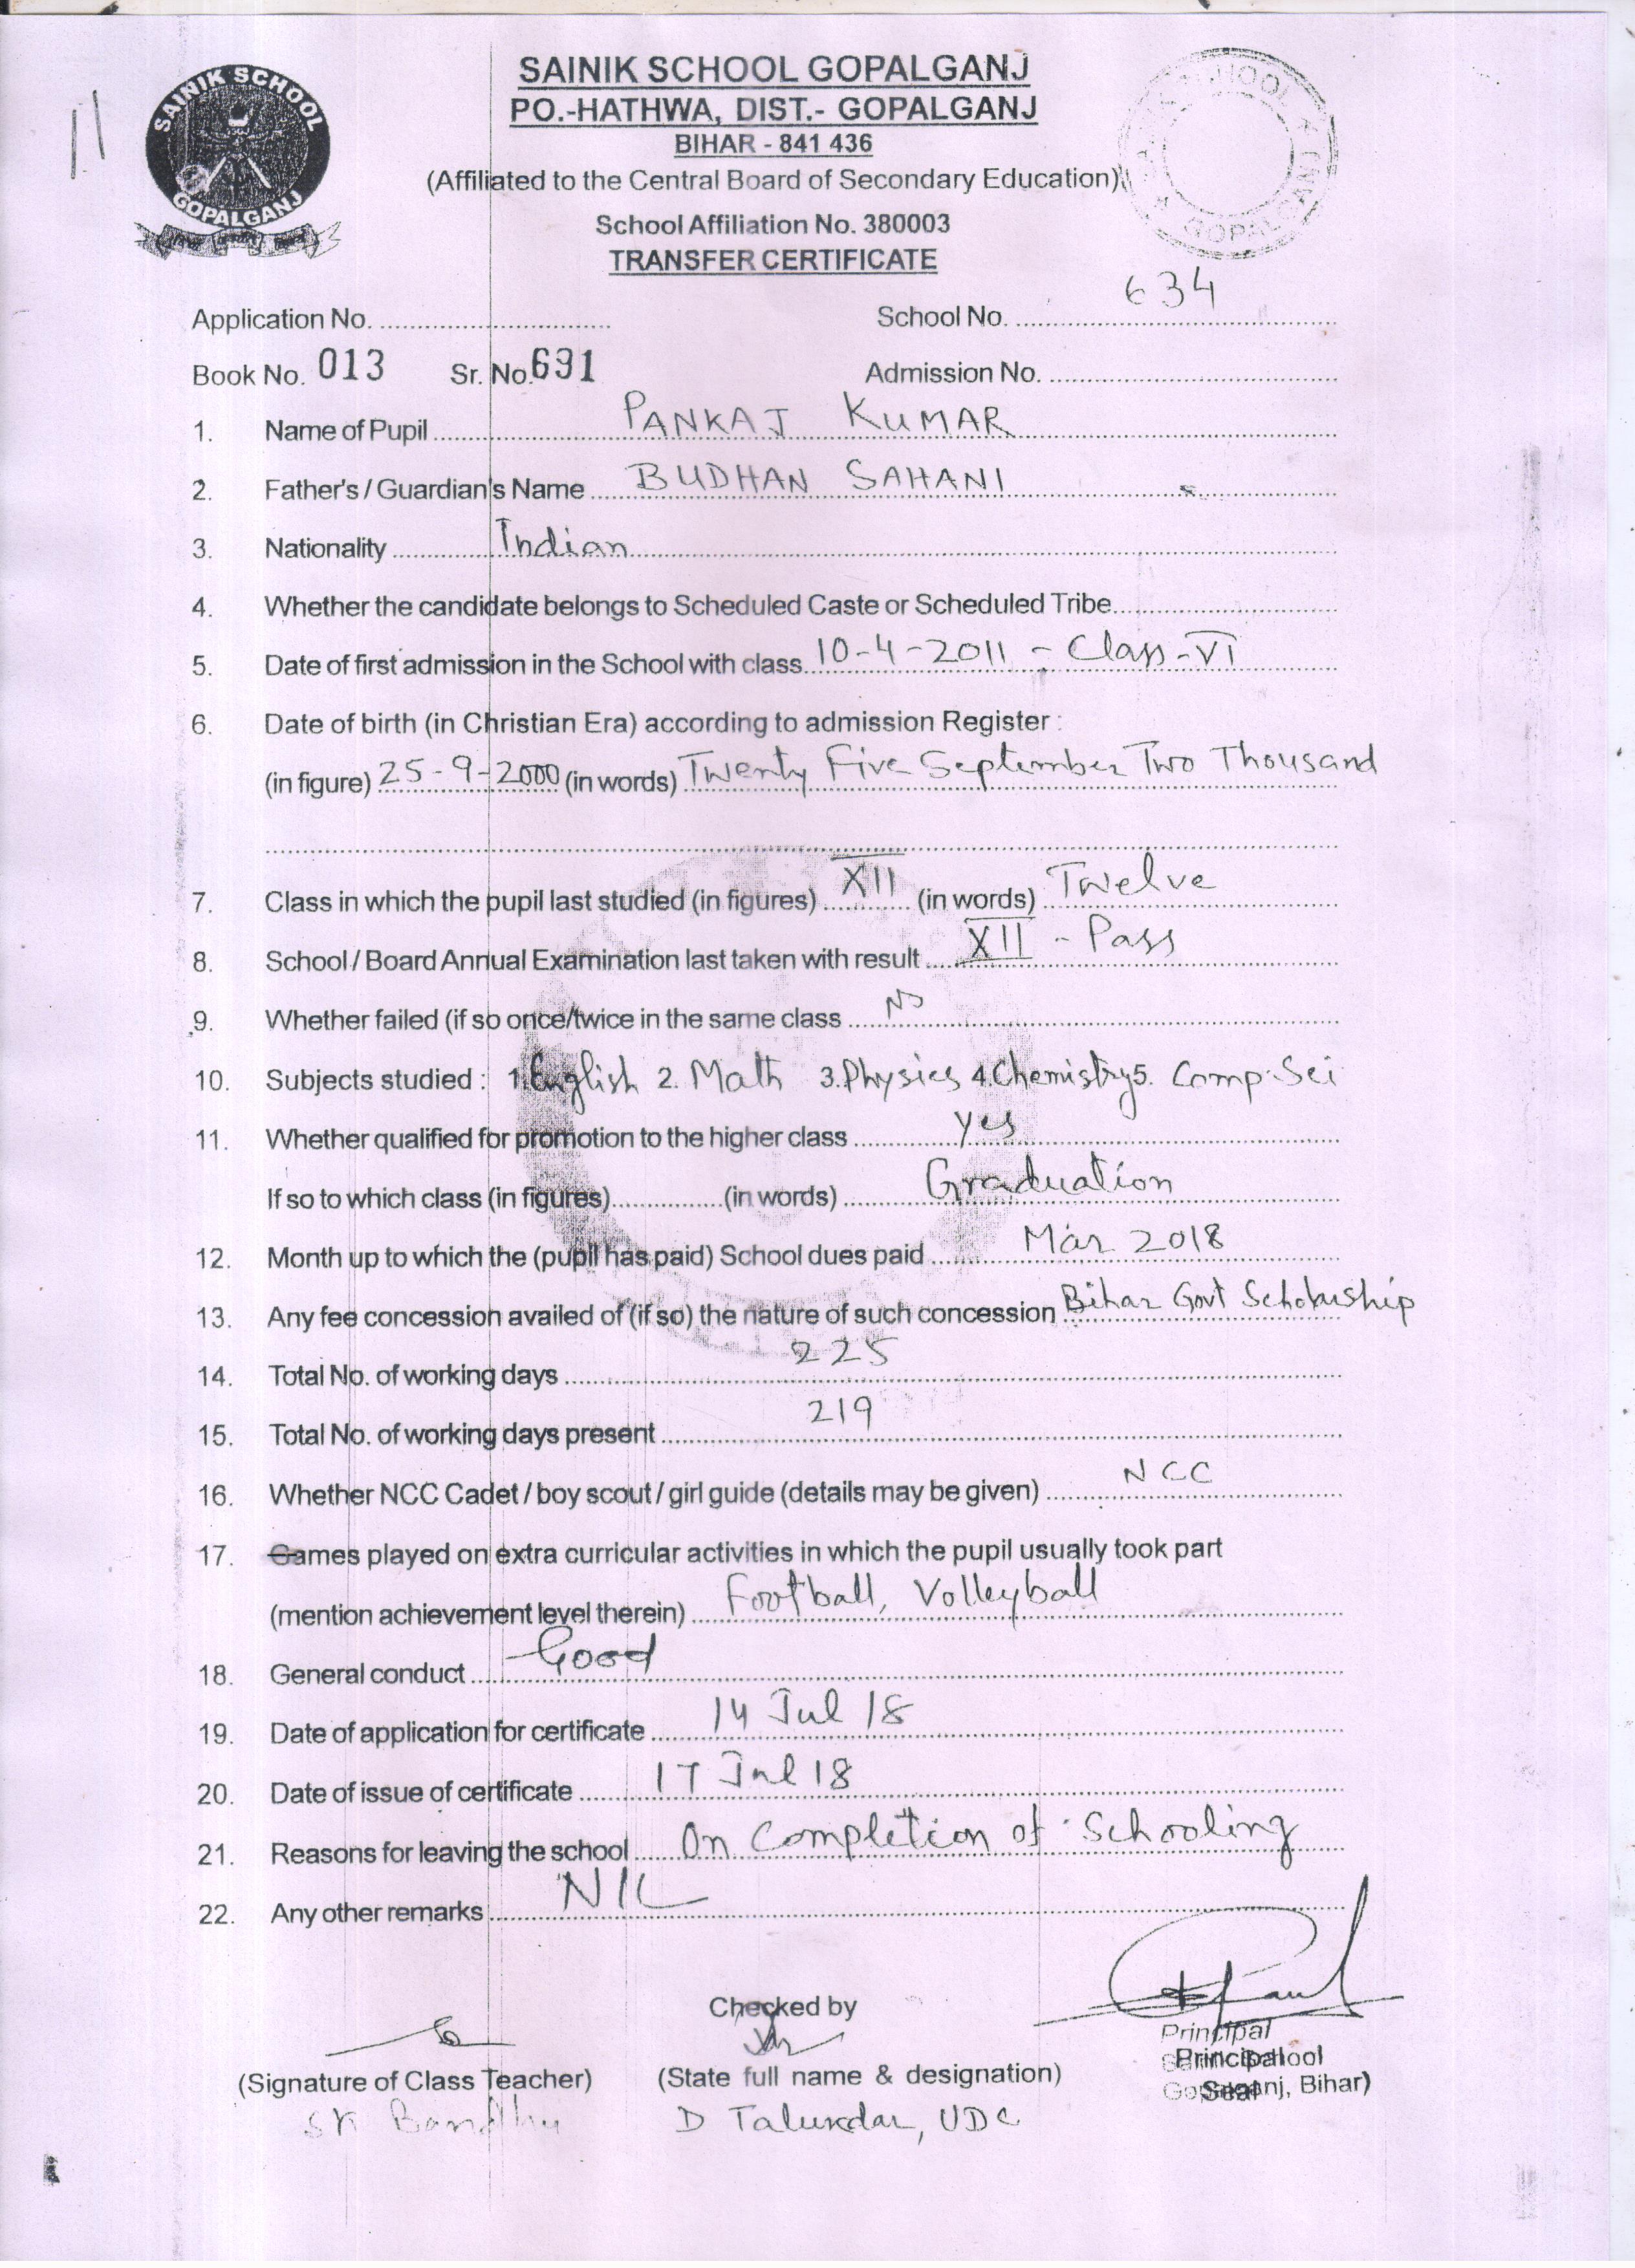 SAINIK SCHOOL
GOPALGANJ
SAINIK SCHOOL GOPALGANJ
PO.-HATHWA, DIST.- GOPALGANJ
BIHAR - 841 436
(Affiliated to the Central Board of Secondary Education)
School Affiliation No. 380003
TRANSFER CERTIFICATE
11
SCHOOL
GOPALGANJ
Application No. School No. 634
Book No. 013 Sr. No. 691 Admission No.
1. Name of Pupil PANKAJ KUMAR
2. Father's / Guardian's Name BUDHAN SAHANI
3. Nationality Indian
4. Whether the candidate belongs to Scheduled Caste or Scheduled Tribe
5. Date of first admission in the School with class 10-4-2011 - Class-VI
6. Date of birth (in Christian Era) according to admission Register :
(in figure) 25-9-2000 (in words) Twenty Five September Two Thousand
7. Class in which the pupil last studied (in figures) XII (in words) Twelve
8. School / Board Annual Examination last taken with result XII - Pass
9. Whether failed (if so once/twice in the same class No
10. Subjects studied : 1. English 2. Math 3. Physics 4. Chemistry 5. Comp. Sci
11. Whether qualified for promotion to the higher class Yes
If so to which class (in figures) (in words) Graduation
12. Month up to which the (pupil has paid) School dues paid Mar 2018
13. Any fee concession availed of (if so) the nature of such concession Bihar Govt Scholarship
14. Total No. of working days 225
15. Total No. of working days present 219
16. Whether NCC Cadet / boy scout / girl guide (details may be given) NCC
17. Games played on extra curricular activities in which the pupil usually took part
(mention achievement level therein) Football, Volleyball
18. General conduct Good
19. Date of application for certificate 14 Jul 18
20. Date of issue of certificate 17 Jul 18
21. Reasons for leaving the school On Completion of Schooling
22. Any other remarks NIL
Checked by
Principal
(Signature of Class Teacher) (State full name & designation) Principal
Seal
Bihar)
SK Bandhu D Talukdar, UDC